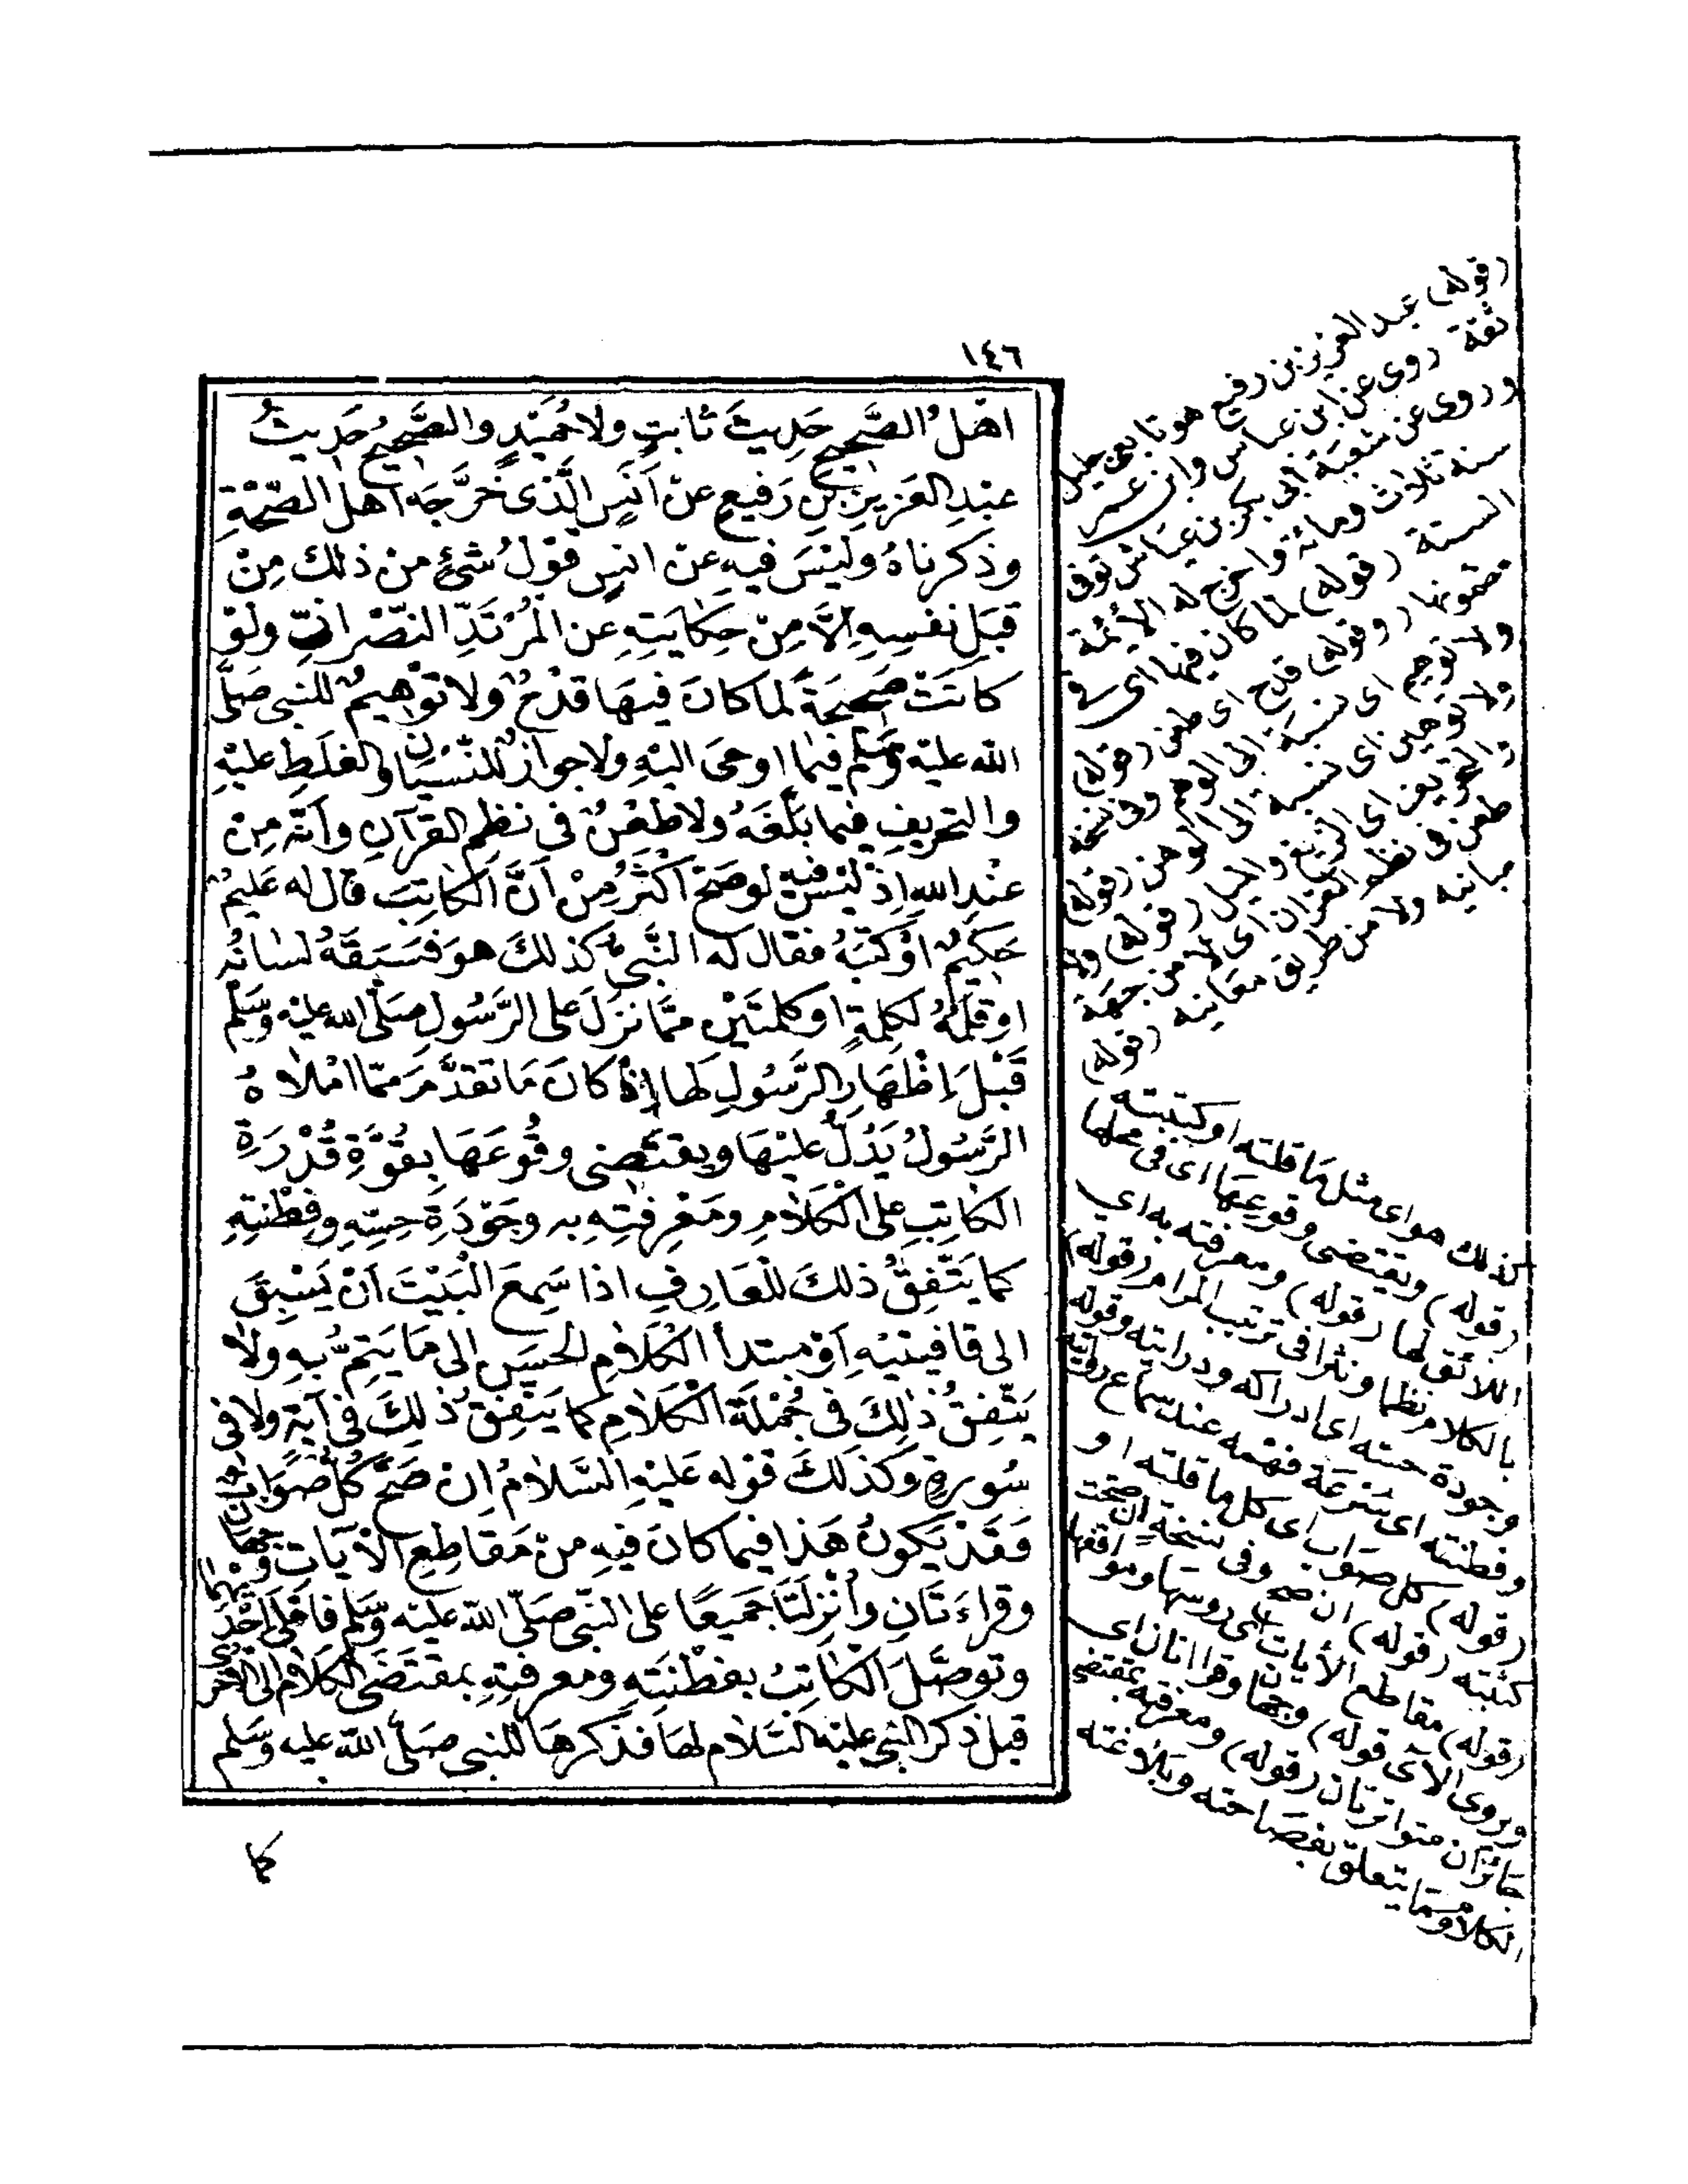 ١٤٦
اَهْلُ الصَّحِيحِ حَدِيثَ ثَابتٍ ولا حُمَيْدٍ والصَّحِيحُ حَدِيثُ
عَبْدِ العَزِيزِ بْنِ رَفيعٍ عَنْ اَنَسٍ الَّذى خَرَّجَه اَهلُ الصِّحَّةِ
وذكرناهُ وليْسَ فيه عَنْ انسٍ قَوْلُ شئٍ من ذلك مِنْ
قِبَلِ نفسِهِ اِلَّا مِنْ حِكَايَتِهِ عَن المُرْتَدِّ النَّصْرانىِّ ولَوْ
كانَتْ صَحِيحَةً لماكانَ فيهَا قدْحٌ ولا تَوْهِيمٌ للنبى صَلَّى
الله عليْهِ وسَلم فيما اوحىَ اليْهِ ولا جوازٌ للنّسيَانِ والغلَطِ عليْهِ
والتحريفِ فيما بَلَّغَهُ ولا طَعْنٌ فى نظمِ القرآنِ وأنّه مِنْ
عنْدِ الله اِذ ليْسَ فيهِ لوصَحّ اكْثَرُ مِنْ اَنَّ الكاتِبَ قال له عَليمٌ
حَكيمٌ اَوْكَتَبَهُ فقال له النَّبىُّ كَذلكَ هوَ فسَبَقَهُ لسانُه
اوقلمُهُ لكلمةٍ اوكلمتَيْنِ ممَّا نزَلَ على الرَّسُولِ صَلَّى الله عليْه وسَلّم
قَبْلَ اِظْهَارِ الرَّسُولِ لها اِذْ كانَ مَا تقدَّمَ ممّا امْلاهُ
الرَّسُولُ يَدُلُّ عليْهَا ويقتضِى وقُوعَهَا بقُوَّةِ قُدْرَةِ
الكاتِبِ على الكَلامِ ومَعْرِفتِهِ به وجَوْدَةِ حسِّهِ وفِطْنتِهِ
كما يَتَّفِقُ ذلكَ للْعَارِفِ اذا سَمِعَ البَيْتَ اَنْ يَسْبِقَ
الى قافيتِهِ اَوْ مبتدأ الكَلامِ الحسَنِ الى مَا يَتِمُّ بهِ ولا
يَتَّفِقُ ذلِكَ فى جُمْلَةِ الكَلامِ كما يَتَّفِقُ ذلكَ فى آيةٍ ولا فى
سُورةٍ وكَذلكَ قوْله عَليْهِ السَّلامُ اِن صَحّ كُلٌّ صَوَابٌ
فَقَدْ يَكونُ هَذا فيما كانَ فيهِ مِنْ مَقاطِعِ الآيَاتِ وجْهَانِ
وقراءَتَانِ اُنْزِلَتَا جَميعًا على النّبى صَلّى الله عليْه وسَلم فاَمْلى اِحْدَيهُما
وتوصَّلَ الكاتِبُ بفِطْنَتِهِ ومعرفتِهِ بمقتَضَى الكَلامِ الى الاخرى
قبل ذكر النبى عليْهِ السَّلام لهَا فَذَكرهَا للنبى صَلّى الله عليه وسَلم
كما
(قوله) عبد العزيز بن رفيع هو تابعى جليل
ثقة روى عن ابن عباس وابن عمر
وروى عن شعبة ابى بكر بن عياش توفى
سنة ثلاث ومائة واخرج له الأئمة
الستة (قوله) لما كان فيها اى فى
مضمونها (وقوله) قدح اى طعن (قوله)
ولا توهيم اى نسبة الى الوهم وفى نسخة
ولا توهين اى نسبة الى الوهن (قوله)
والتحريف اى الزيغ والميل (قوله) ولا
طعن فى نظم القران اى لا من جهة
مبانيه ولا من طريق معانيه (قوله)
كذلك هو اى مثل ما قلته او كتبته
(قوله) ويقتضى وقوعها اى فى محلها
اللائق لها (قوله) ومعرفته به اي
بالكلام نظما ونثرا فى ترتيب المرام (قوله)
وجودة حسّه اى ادراكه ودرايته وقوله
وفطنته اى سرعة فهمه عند سماع روايته
(قوله) كل صواب اى كل ما قلته او
كتبته (قوله) ان صح وفى نسخة ان صحت
(قوله) مقاطع الأيات اى روسها ومواقفها
ويروى الآى (قوله) وجهان وقراءتان اى
جائزان متواترتان (قوله) ومعرفته بمقتضى
الكلام مما يتعلق بفصاحته وبلاغته